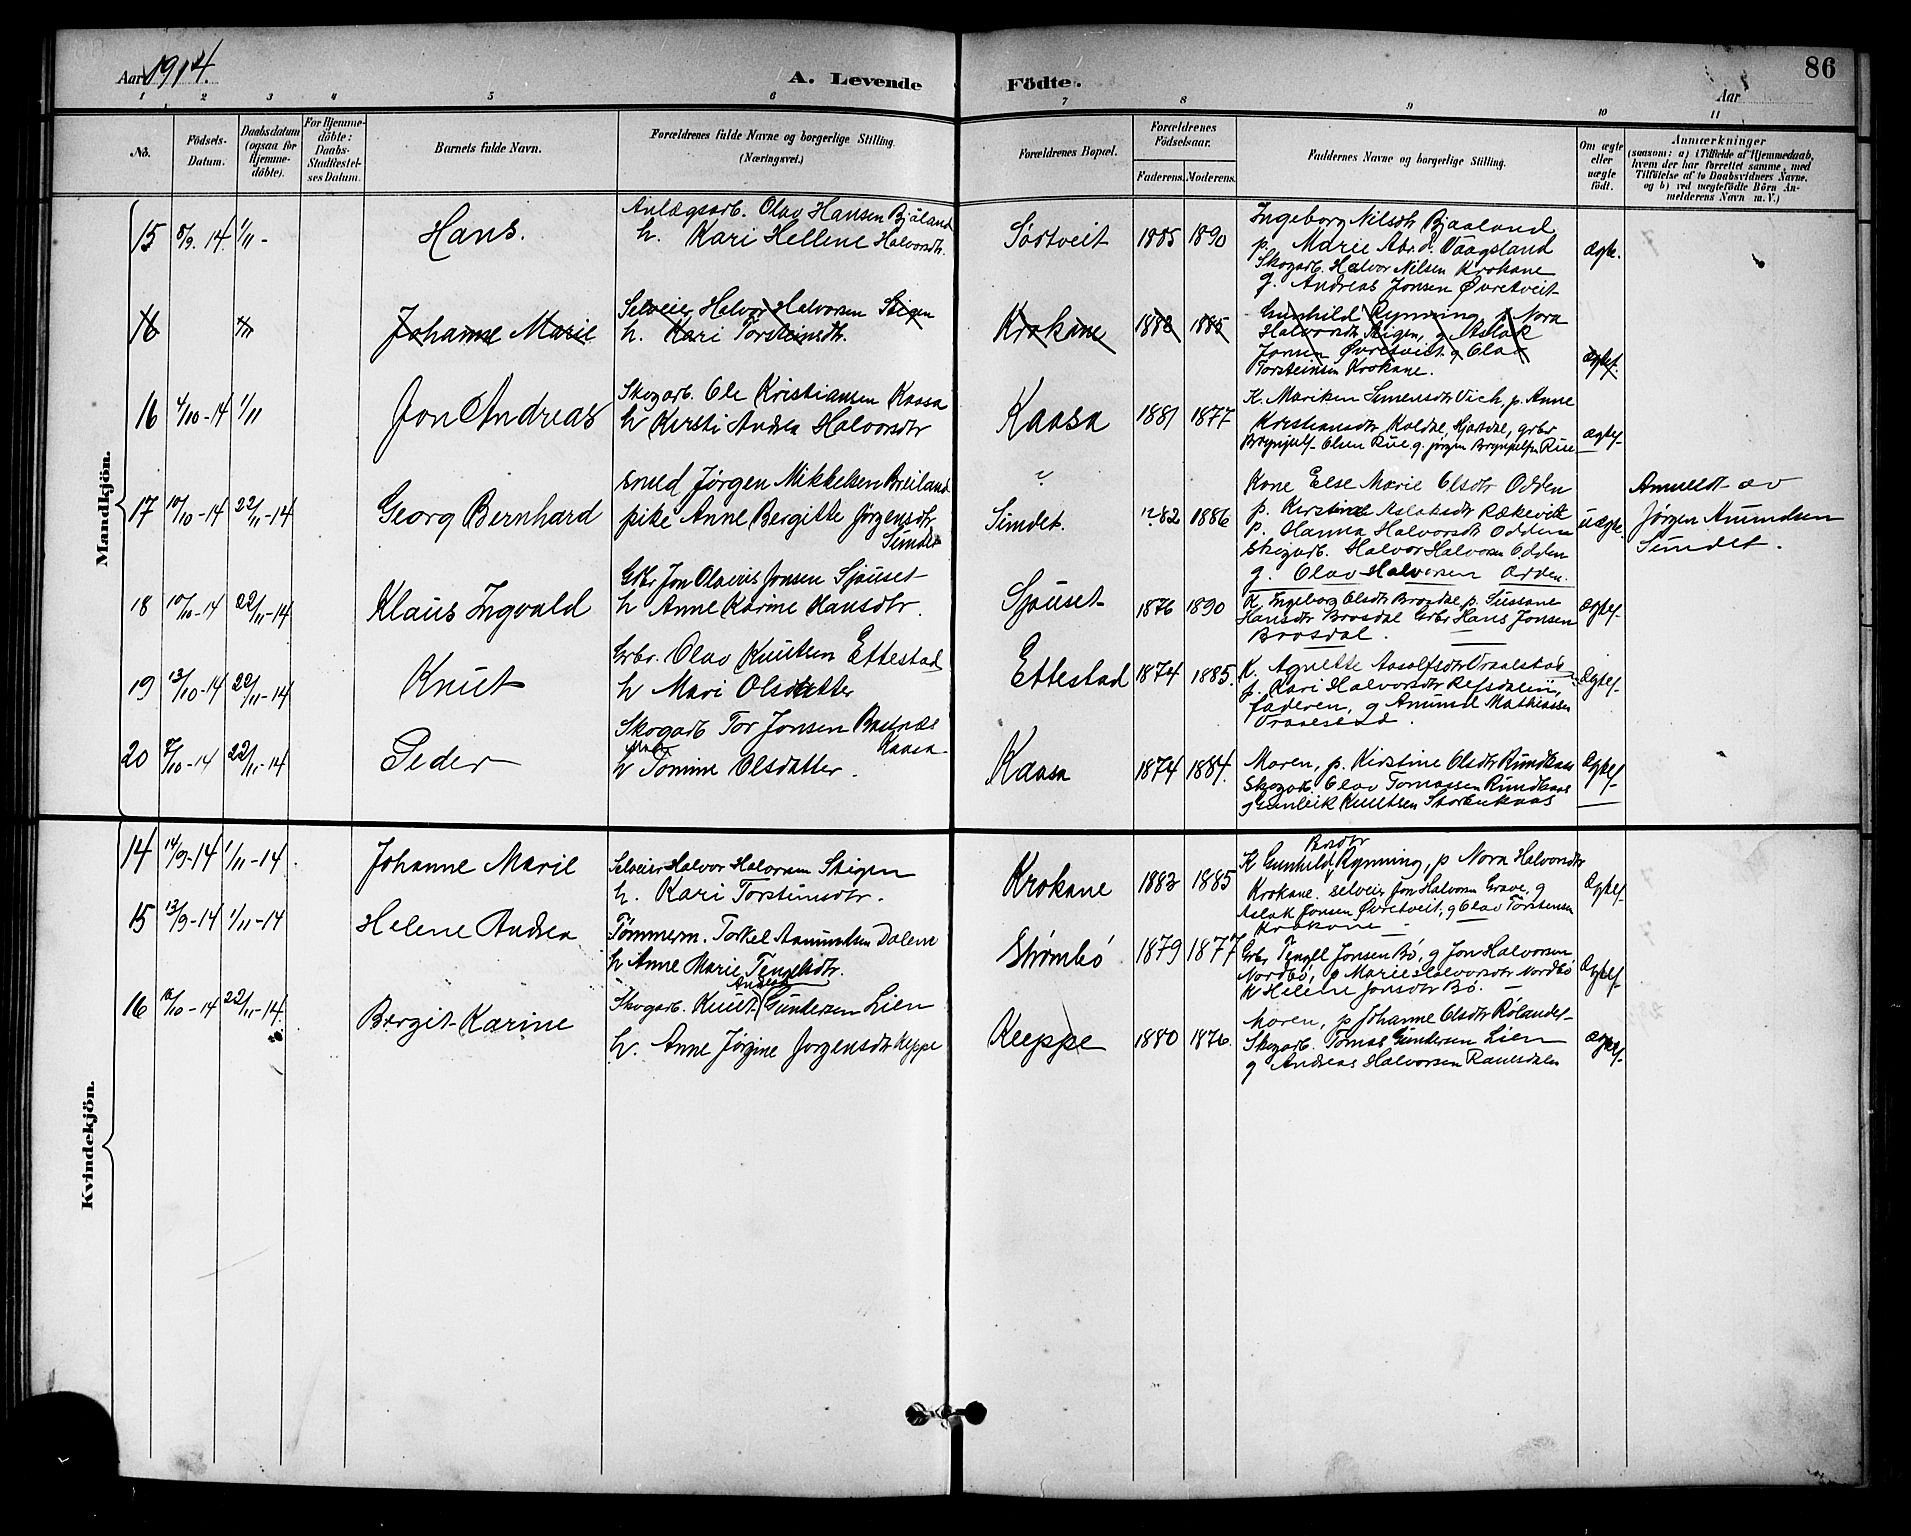 Aar 1914.
A. Levende Födte.
Aar
86
1 2 3 4 5 6 7 8 9 10 11
Nô.
Födsels-Datum.
Daabsdatum (ogsaa for Hjemmedöbte).
For Hjemmedöbte: Daabs-Stadfestelses Datum.
Barnets fulde Navn.
Forældrenes fulde Navne og borgerlige Stilling. (Næringsvei.)
Forældrenes Bopæl.
Forældrenes Födselsaar.
Faderens. Moderens.
Faddernes Navne og borgerlige Stilling.
Om ægte eller uægte födt.
Anmærkninger
(saasom: a) i Tilfælde af Hjemmedaab,
hvem der har forrettet samme, med
Tilföielse af to Daabsvidners Navne.
og b) ved uægtefödte Börn Anmelderens Navn m.V.)
Mandkjön.
15 8/9. 14 1/11 -
Hans.
Anlægsarb. Olav Hansen Bjåland
h. Kari Hellene Halvorsdtr.
Sørtveit 1885 1890
Ingeborg Nilsdtr Bjaaland
p. Marie Abr.d. Vaagsland
Skogarb. Halvor Nilsen Krokane
g. Andreas Jonsen Øvretveit
ægte.
16
Johanne Marie
Selveier Halvor Halvorsen Stigen
h. Kari Torsteinsdtr.
Krokane 1883 1885
Gunhild Rynning, p Nora
Halvorsdtr Stigen, g Aslak
Jonsen Øvretveit g Olav
Torsteinsen Krokane.
ægtef.
16 4/10-14 1/11
Jon Andreas
Skogarb. Ole Kristiansen Kaasa
h Kirsti Andrea Halvorsdtr
Kaasa 1881 1877
K. Mariken Simensdtr Vich, p. Anne
Kristiansdtr Koldal, Hjartdal, grbr
Brynjulf Olsen Rue g. Jørgen Brynjulfsen Rue
ægtef
17 10/10-14 22/11-14
Georg Bernhard
smed Jørgen Mikkelsen Breiland
pike Anne Bergitte Jørgensdtr
Simdet
Simdet. 1882 1886
Kone Else Marie Olsdtr Odden
p. Kirstine Aslaksdtr Rækevik
p. Olanna Halvorsdtr Odden
Skogarb. Halvor Halvorsn Odden
g. Olav Halvorsen Odden.
uægte.
Anmeldt av
Jørgen Anundsen
Simdet.
18 10/10-14 22/11-14
Klaus Ingvald
Grbr Jon Olavus Jonsen Sjauset
h Anne Karine Hansdtr.
Sjauset 1876 1890
K Ingeborg Olsdtr Brosdal p. Sussane
Hansdtr Brosdal Grbr Hans Jonsen
Brosdal.
ægtef
19 13/10-14 22/11-14
Knut
Grbr. Olav Knutsen Ettestad
h Mari Olsdatter
Ettestad 1874 1885.
K. Agnette Aasolfsdtr
p. Kari Halvorsdtr Refsdalen,
faderen, g Anund Mathiassen
ægtef
20 8/10-14 22/11-14
Peder
Skogarb Tor Jonsen
Kaasa
h Tomine Olsdatter.
Kaasa 1874 1884.
Moren, p. Kirstine Olsdtr Rundkaas
Skogarb. Olav Tomassen Rundkaas
g Gunleik Knutsen Storbukaas
ægtef
Kvindekjön.
14 14/9-14 1/11-14.
Johanne Marie
Selveier Halvor Halvorsen Stigen
h. Kari Torsteinsdtr.
Krokane 1883 1885
K Gunhild Rynning, p Nora Halvorsdtr
Krokane. selveier Jon Halvorsn Grave, g
Aslak Jonsen Øvretveit, g Olav Torstensen
Krokane
ægtef
15 13/9-14 1/11-14
Helene Andrea
Tømmerm. Torkel Aanundsen Dalene
h Anne Marie Tengelsdtr.
Strømbø 1879 1877
Grbr Tengel Jonsen Bø, g Jon Halvorsen
Nordbø, p Marie Halvorsdtr Nordbø
K Helene Jonsdtr Bø.
ægtef
16 16/10-14 22/11-14.
Bergit Karine
Skogarb. Knut Gundersen Lien
h. Anne Jørgine Jørgensdtr Keppe
Keeppe 1880 1876.
Moren, p Johanne Olsdtr Rølandet
Skogarb. Tomas Gundersen Lien
g Andreas Halvorsen Raulsdalen
ægtef